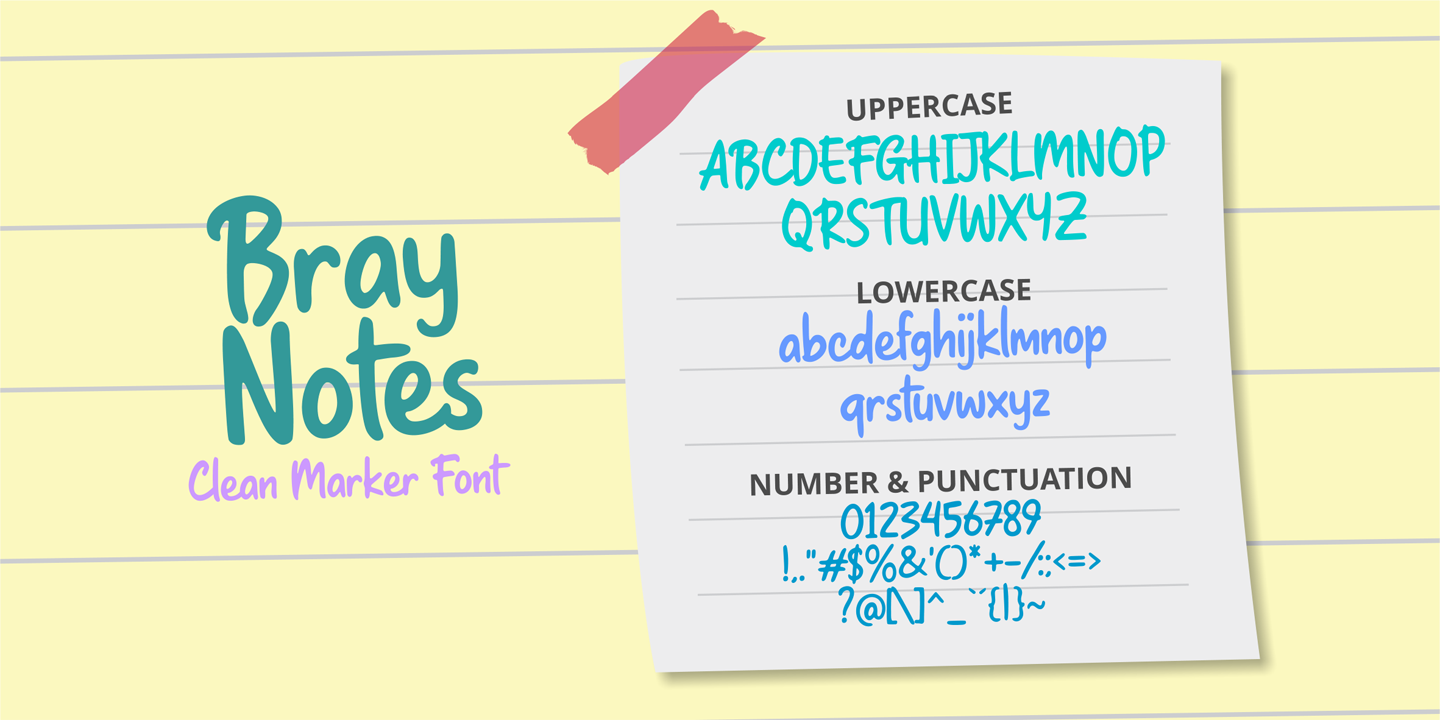 Bray
Notes
Clean Marker Font
UPPERCASE
ABCDEFGHIJKLMNOP
QRSTUVWXYZ
LOWERCASE
abcdefghijklmnop
qrstuvwxyz
NUMBER & PUNCTUATION
0123456789
!,."#$%&'()*+-/:;<=>
?@[\]^_`´{|}~